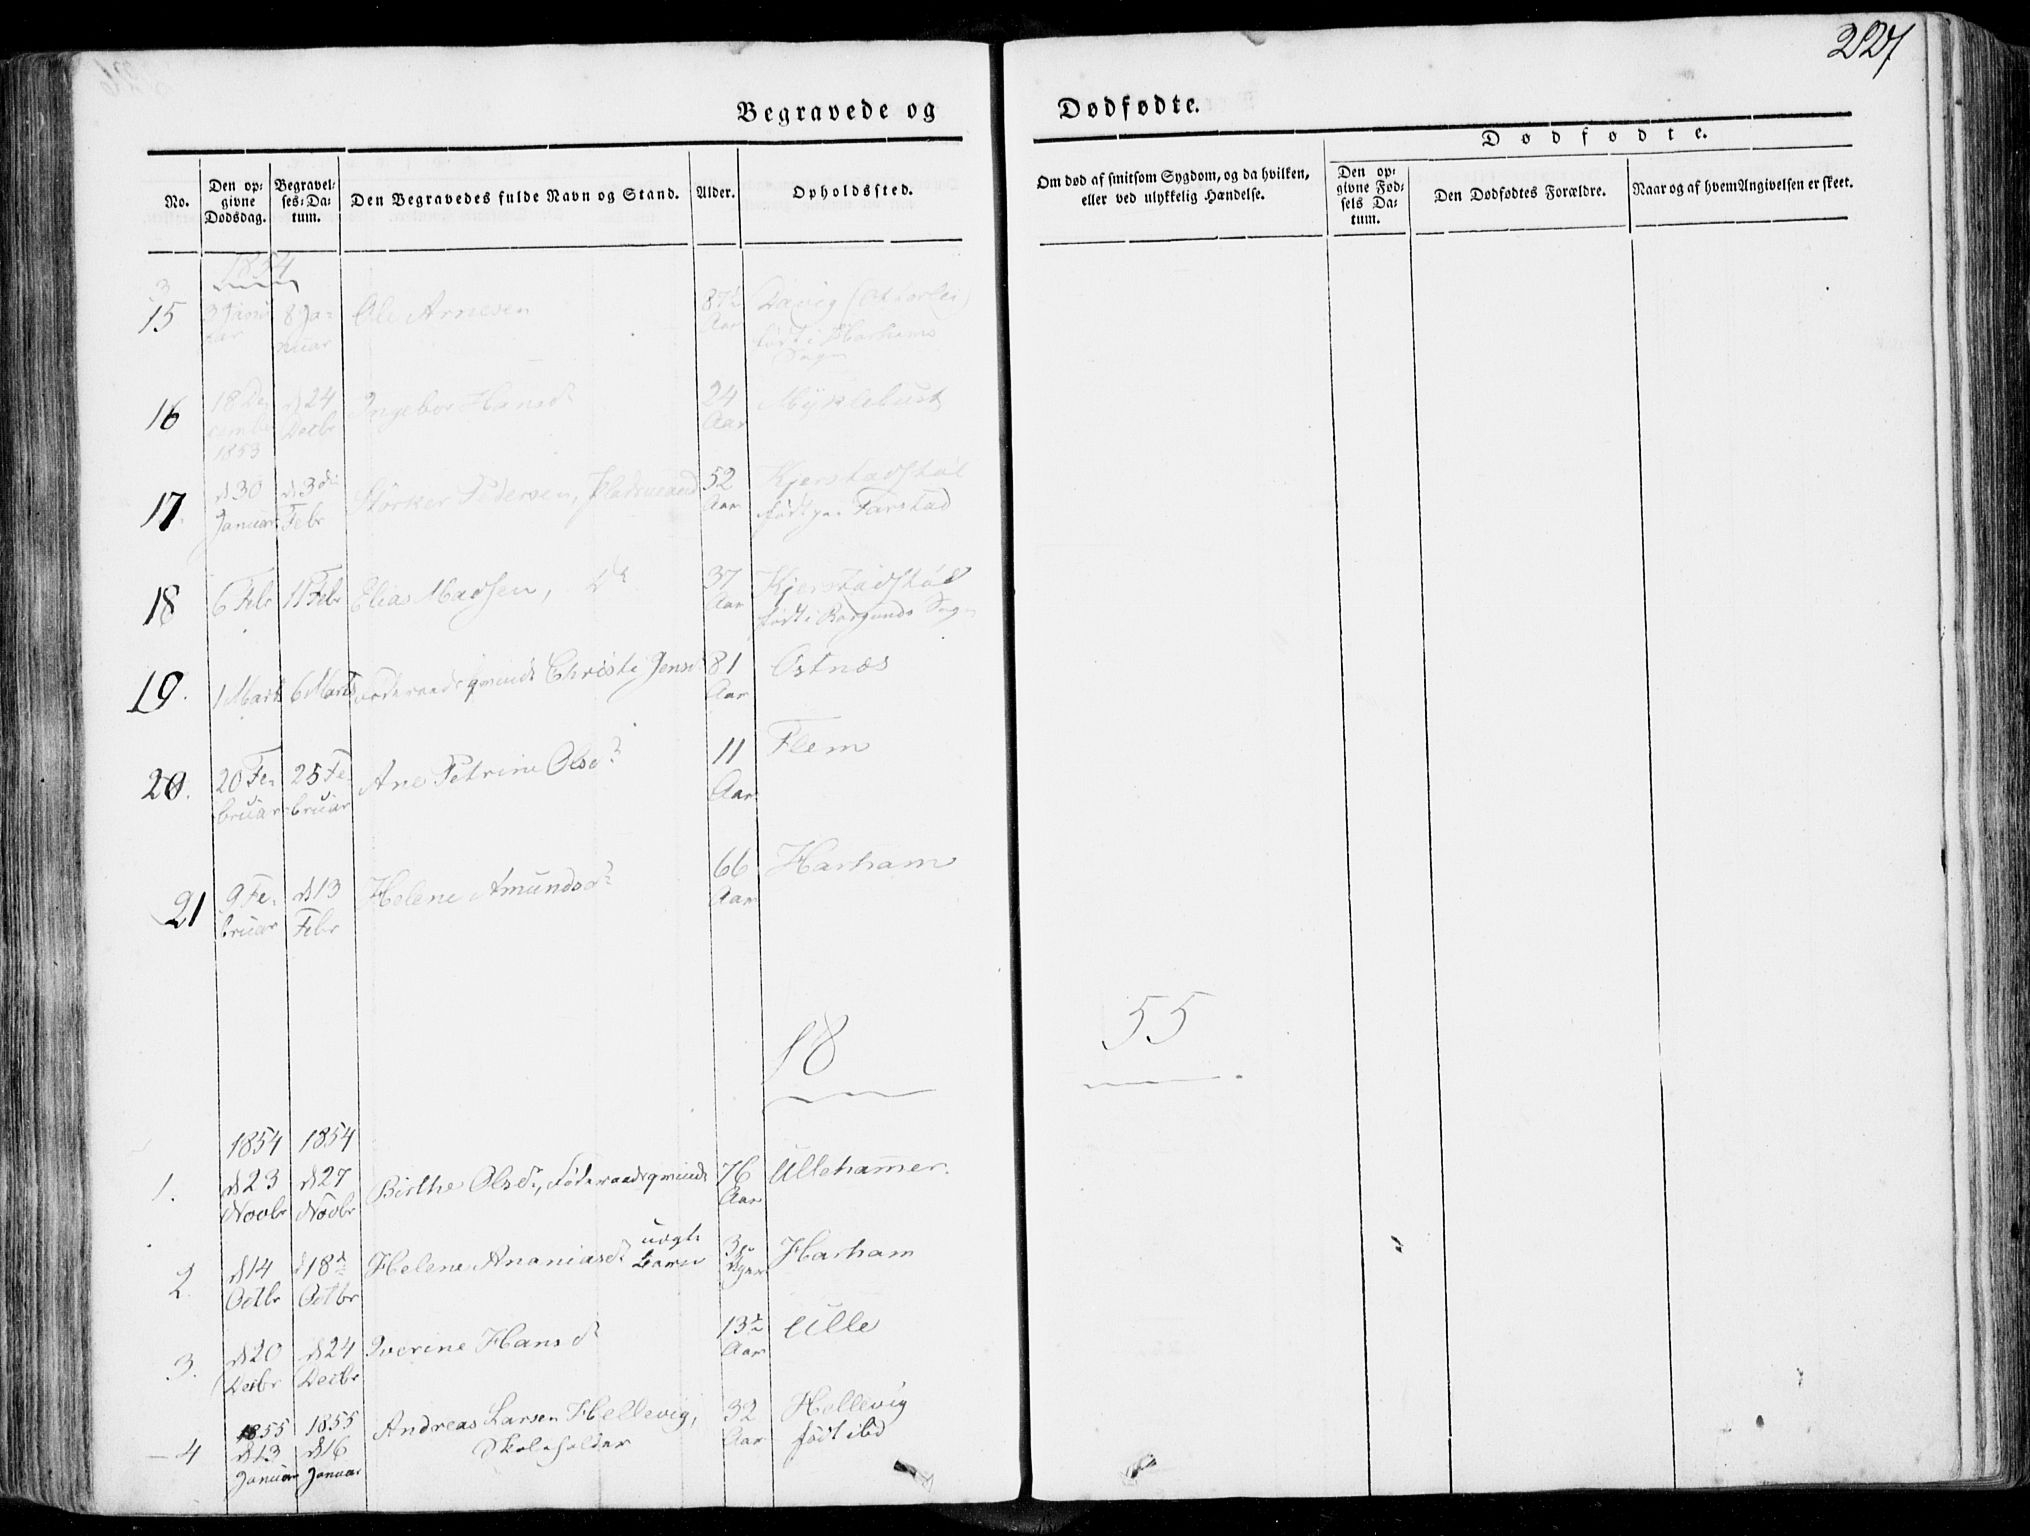 227
Begravede og Dødfødte.
No.
Den op-
givne
Dødsdag.
Begravel-
ses-Da-
tum.
Den Begravedes fulde Navn og Stand.
Alder.
Opholdssted.
Om død af smitsom Sygdom, og da hvilken,
eller ved ulykkelig Hændelse.
Dødfødte.
Den op-
givne Fød-
sels Da-
tum.
Den Dødfødtes Forældre.
Naar og af hvem Angivelsen er skeet.
1854
15 3 Janu
uar 8 Ja-
nuar Ole Arnesen 87½
Aar
født i Harhams
Sogn
16 18 De
cembr
1853 d 24
Decbr Ingebor Hansd 24
Aar Myklebust
17. d 30
Januar d 3die
Febr Størker Pedersen, Pladsmand 52
Aar Kjerstadstøl
født paa Farstad
18 6 Febr 11 Febr Elias Madsen, Do 37
Aar Kjerstadstøl
født i Borgunds Sogn
19. 1 Marts 6 Marts Føderaadsqvinde Christi Jensd 81
Aar Østnæs
20. 20 Fe-
bruar 25 Fe-
bruar Ane Petrine Olsdr 11
Aar Flem
21 9 Fe-
bruar d 13
Febr Helene Amundsdr 66
Aar Harham
18
55
1854 1854
1. d 23
Novbr d 27
Novbr Birthe Olsdr, Føderaadsqvinde 76
Aar Ullehammer.
2. d 14
Octbr d 18de
Octbr Helene Ananiasdr uægte
Barn 3
Harham
3. d 20
Decbr d 24
Decbr Iverine Hansdr 13½
Aar Ulle
4 1855
d 13
Januar 1855
d 16
Januar Andreas Larsen Hellevig,
Skoleholder 32
Aar Hellevig
født ibd